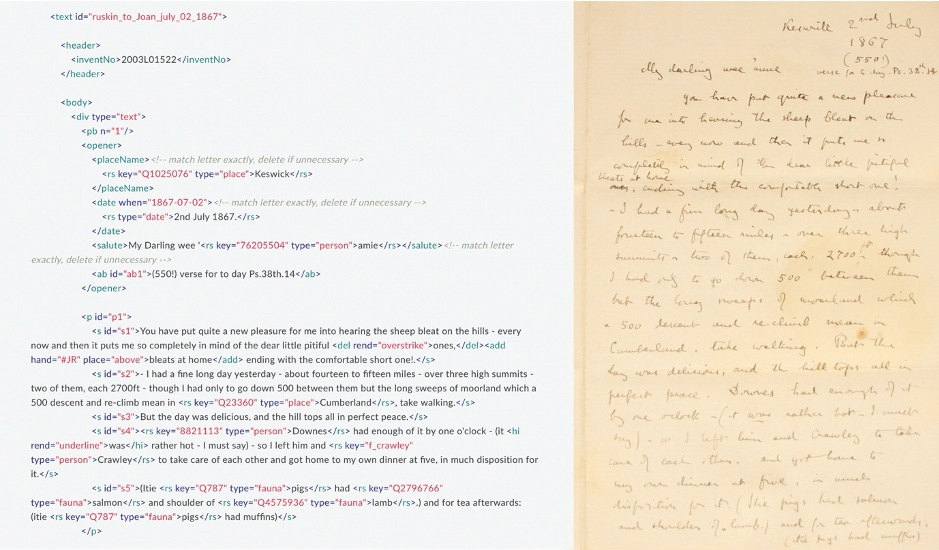 <text id="ruskin_to_Joan_july_02_1867">
<header>
<inventNo>2003L01522</inventNo>
</header>
<body>
<div type="text">
<pb n="1"/>
<opener>
<placeName><!-- match letter exactly, delete if unnecessary -->
<rs key="Q1025076" type="place">Keswick</rs>
</placeName>
<date when="1867-07-02"><!-- match letter exactly, delete if unnecessary -->
<rs type="date">2nd July 1867.</rs>
</date>
<salute>My Darling wee '<rs key="76205504" type="person">amie</rs></salute><!-- match letter
exactly, delete if unnecessary -->
<ab id="ab1">(550!) verse for to day Ps.38th.14</ab>
</opener>
<p id="p1">
<s id="s1">You have put quite a new pleasure for me into hearing the sheep bleat on the hills - every
now and then it puts me so completely in mind of the dear little pitiful <del rend="overstrike">ones,</del><add
hand="#JR" place="above">bleats at home</add> ending with the comfortable short one!.</s>
<s id="s2">- I had a fine long day yesterday - about fourteen to fifteen miles - over three high summits -
two of them, each 2700ft - though I had only to go down 500 between them but the long sweeps of moorland which a
500 descent and re-climb mean in <rs key="Q23360" type="place">Cumberland</rs>, take walking.</s>
<s id="s3">But the day was delicious, and the hill tops all in perfect peace.</s>
<s id="s4"><rs key="8821113" type="person">Downes</rs> had enough of it by one o'clock - (it <hi
rend="underline">was</hi> rather hot - I must say) - so I left him and <rs key="f_crawley"
type="person">Crawley</rs> to take care of each other and got home to my own dinner at five, in much disposition for
it.</s>
<s id="s5">(Itie <rs key="Q787" type="fauna">pigs</rs> had <rs key="Q2796766"
type="fauna">salmon</rs> and shoulder of <rs key="Q4575936" type="fauna">lamb</rs>.) and for tea afterwards:
(itie <rs key="Q787" type="fauna">pigs</rs> had muffins)</s>
</p>
Keswick 2nd July
1867
(550!)
My darling wee 'amie verse for to day. Ps. 38th.14
you have put quite a new pleasure
for me into hearing the sheep bleat on the
hills - every now and then it puts me so
completely in mind of the dear little pitiful
bleats at home
ones, ending with the comfortable short one!
- I had a fine long day yesterday - about
fourteen to fifteen miles - over three high
summits - two of them, each 2700ft though
I had only to go down 500 between them
but the long sweeps of moorland which
a 500 descent and re-climb mean in
Cumberland, take walking. But the
day was delicious, and the hill tops all in
perfect peace. Downes had enough of it
by one oclock - (it was rather hot - I must
say) - so I left him and Crawley to take
care of each other. and got home to
my own dinner at five, in much
disposition for it. (the pigs had salmon
and shoulder of lamb.) and for tea afterwards,
(the pigs had muffins)